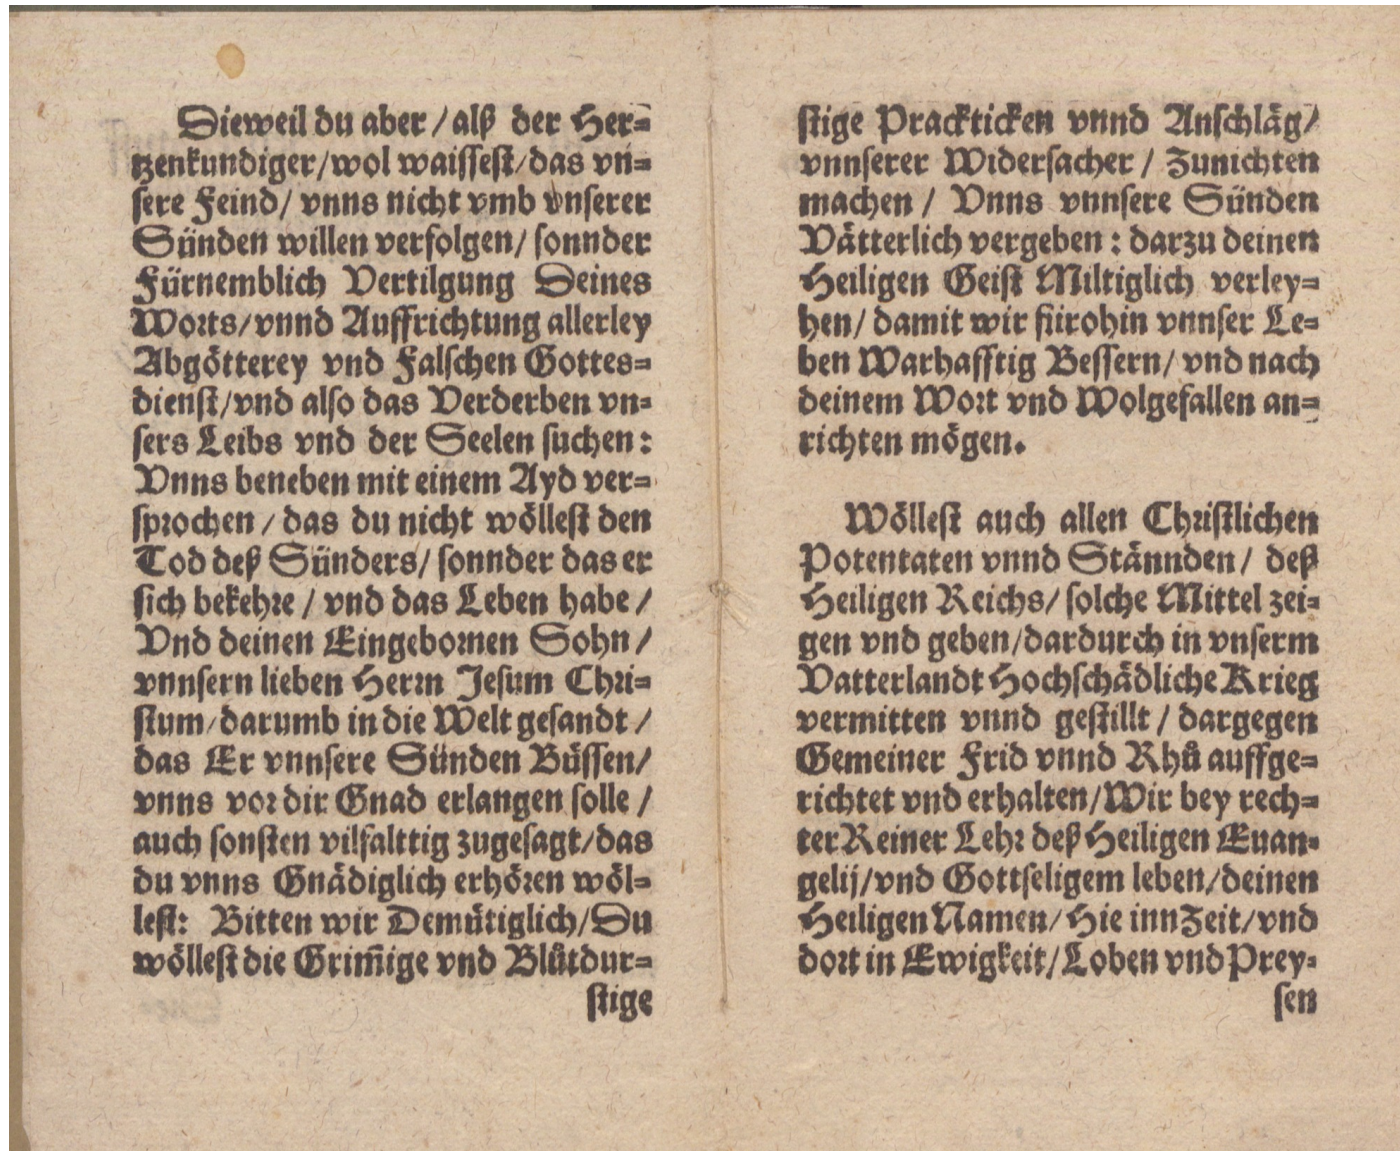 Dieweil du aber / alß der Her=
tzenkundiger/wol waissest/das vn=
sere Feind/ vnns nicht vmb vnserer
Sünden willen verfolgen/ sonnder
Fürnemblich Vertilgung Deines
Worts/vnnd Auffrichtung allerley
Abgötterey vnd Falschen Gottes=
dienst/vnd also das Verderben vn=
sers Leibs vnd der Seelen suchen:
Vnns beneben mit einem Ayd ver=
sprochen / das du nicht wöllest den
Tod deß Sünders/ sonnder das er
sich bekehre / vnd das Leben habe /
Vnd deinen Eingebornen Sohn /
vnnsern lieben Herrn Jesum Chri=
stum/darumb in die Welt gesandt /
das Er vnnsere Sünden Büssen/
vnns vor dir Gnad erlangen solle /
auch sonsten vilfalttig zugesagt/das
du vnns Gnädiglich erhören wöl=
lest: Bitten wir Demütiglich/Du
wöllest die Grim̃ige vnd Blůtdur=
stige
stige Prackticken vnnd Anschläg/
vnnserer Widersacher / Zunichten
machen / Vnns vnnsere Sünden
Vätterlich vergeben : darzu deinen
Heiligen Geist Miltiglich verley=
hen/ damit wir fürohin vnnser Le=
ben Warhafftig Bessern/ vnd nach
deinem Wort vnd Wolgefallen an=
richten mögen.
Wöllest auch allen Christlichen
Potentaten vnnd Stännden/ deß
Heiligen Reichs/ solche Mittel zei=
gen vnd geben/dardurch in vnserm
Vatterlandt Hochschädliche Krieg
vermitten vnnd gestillt / dargegen
Gemeiner Frid vnnd Rhů auffge=
richtet vnd erhalten/Wir bey rech=
ter Reiner Lehr deß Heiligen Euan=
gelij/vnd Gottseligem leben/deinen
Heiligen Namen/ Hie inn Zeit/vnd
dort in Ewigkeit/Loben vnd Prey=
sen